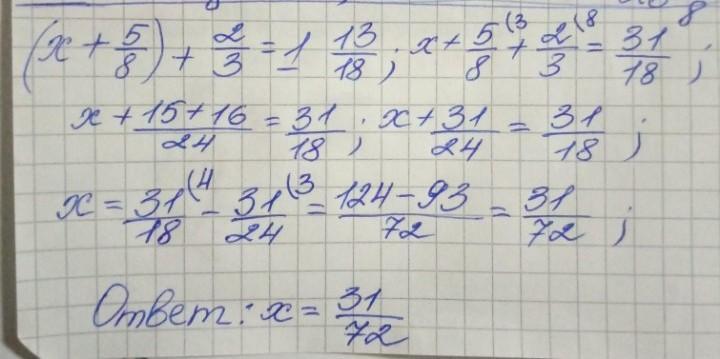 (x + 5/8) + 2/3 = 1 13/18 ; x + 5/8 (3 + 2/3 (8 = 31/18 ;
x + 15+16/24 = 31/18 ; x + 31/24 = 31/18 ;
x = 31/18 (4 - 31/24 (3 = 124-93/72 = 31/72 ;
Ответ: x = 31/72